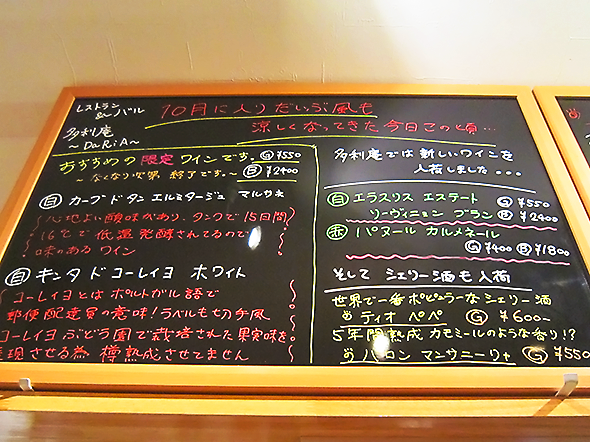 レストラン
&〜バル
多利庵
〜DaRiA〜
10月に入りだいぶ風も
涼しくなってきた今日この頃…
おすすめの限定ワインです。Ⓖ¥550
〜なくなり次第 終了です。〜 Ⓑ¥2400
㊀白 カーブドタン エルミタージュ マルサネ
心地よい酸味があり、タンクで15日間
16℃で低温発酵されてるので
味のあるワイン
白 キンタ ド コーレイヨ ホワイト
コーレイヨとはポルトガル語で
郵便配達員の意味!ラベルも切手風
コーレイヨぶどう園で栽培された果実味を
現させる為 樽熟成させてません
多利庵では新しいワインを
入荷しました...
白 エラスリス エステート Ⓖ¥550
ソーヴィニョン ブラン Ⓑ¥2400
赤 パヌール カルメネール
Ⓖ¥400 Ⓑ¥1800
そして シェリー酒も入荷
世界で一番ポピュラーなシェリー酒
ティオ ペペ Ⓖ¥600-
5年間熟成 カモミールのような香り!?
バロン マンサニーリャ Ⓖ¥550